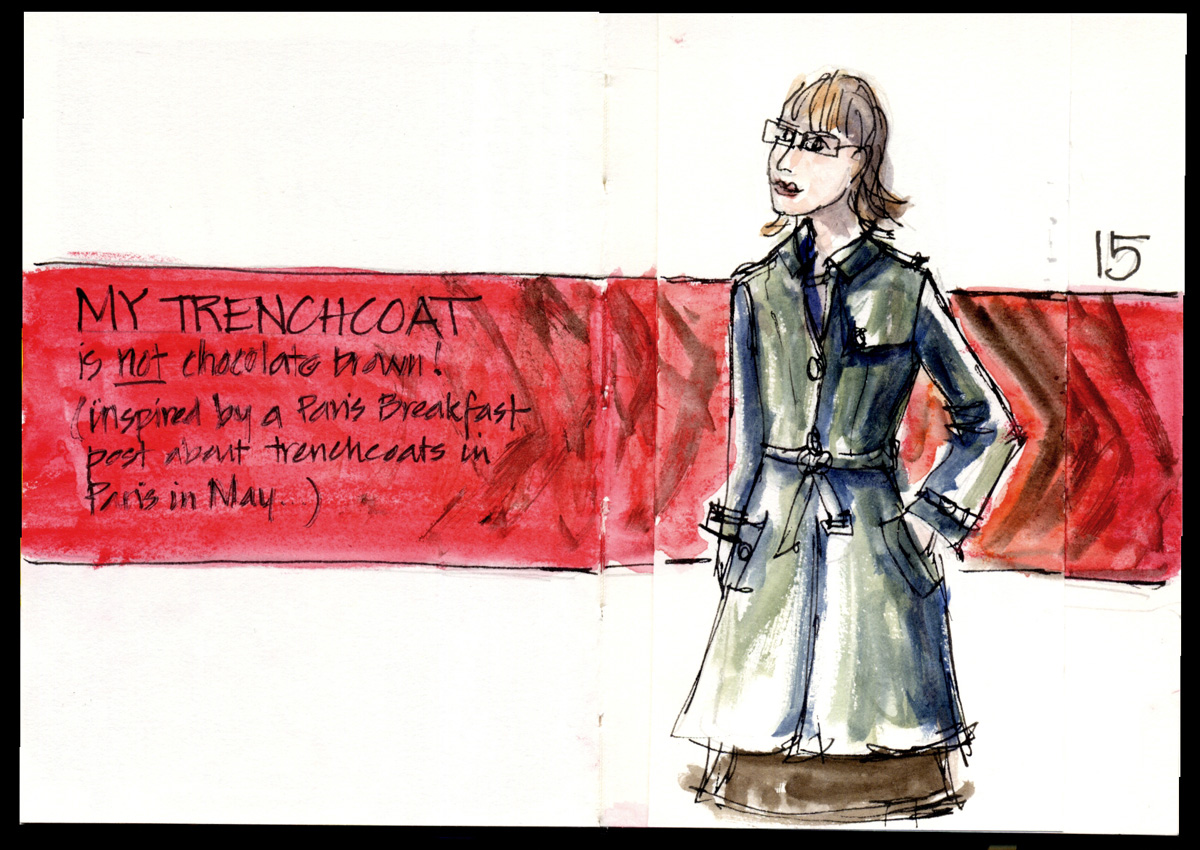 MY TRENCHCOAT
is not chocolate brown!
(inspired by a Paris Breakfast
post about trenchcoats in
Paris in May....)
15